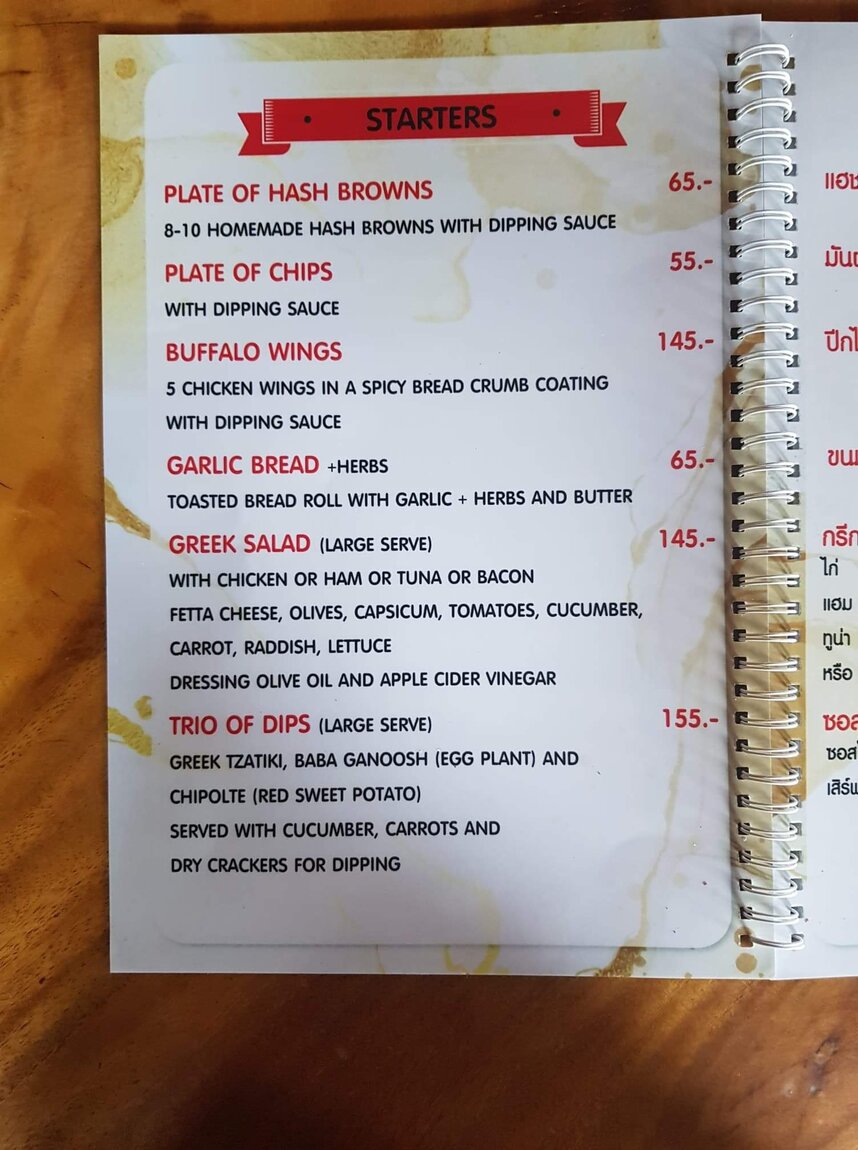 STARTERS
PLATE OF HASH BROWNS 65.-
8-10 HOMEMADE HASH BROWNS WITH DIPPING SAUCE
PLATE OF CHIPS 55.-
WITH DIPPING SAUCE
BUFFALO WINGS 145.-
5 CHICKEN WINGS IN A SPICY BREAD CRUMB COATING
WITH DIPPING SAUCE
GARLIC BREAD +HERBS 65.-
TOASTED BREAD ROLL WITH GARLIC + HERBS AND BUTTER
GREEK SALAD (LARGE SERVE) 145.-
WITH CHICKEN OR HAM OR TUNA OR BACON
FETTA CHEESE, OLIVES, CAPSICUM, TOMATOES, CUCUMBER,
CARROT, RADDISH, LETTUCE
DRESSING OLIVE OIL AND APPLE CIDER VINEGAR
TRIO OF DIPS (LARGE SERVE) 155.-
GREEK TZATIKI, BABA GANOOSH (EGG PLANT) AND
CHIPOLTE (RED SWEET POTATO)
SERVED WITH CUCUMBER, CARROTS AND
DRY CRACKERS FOR DIPPING
ไก่
แฮม
ทูน่า
หรือ